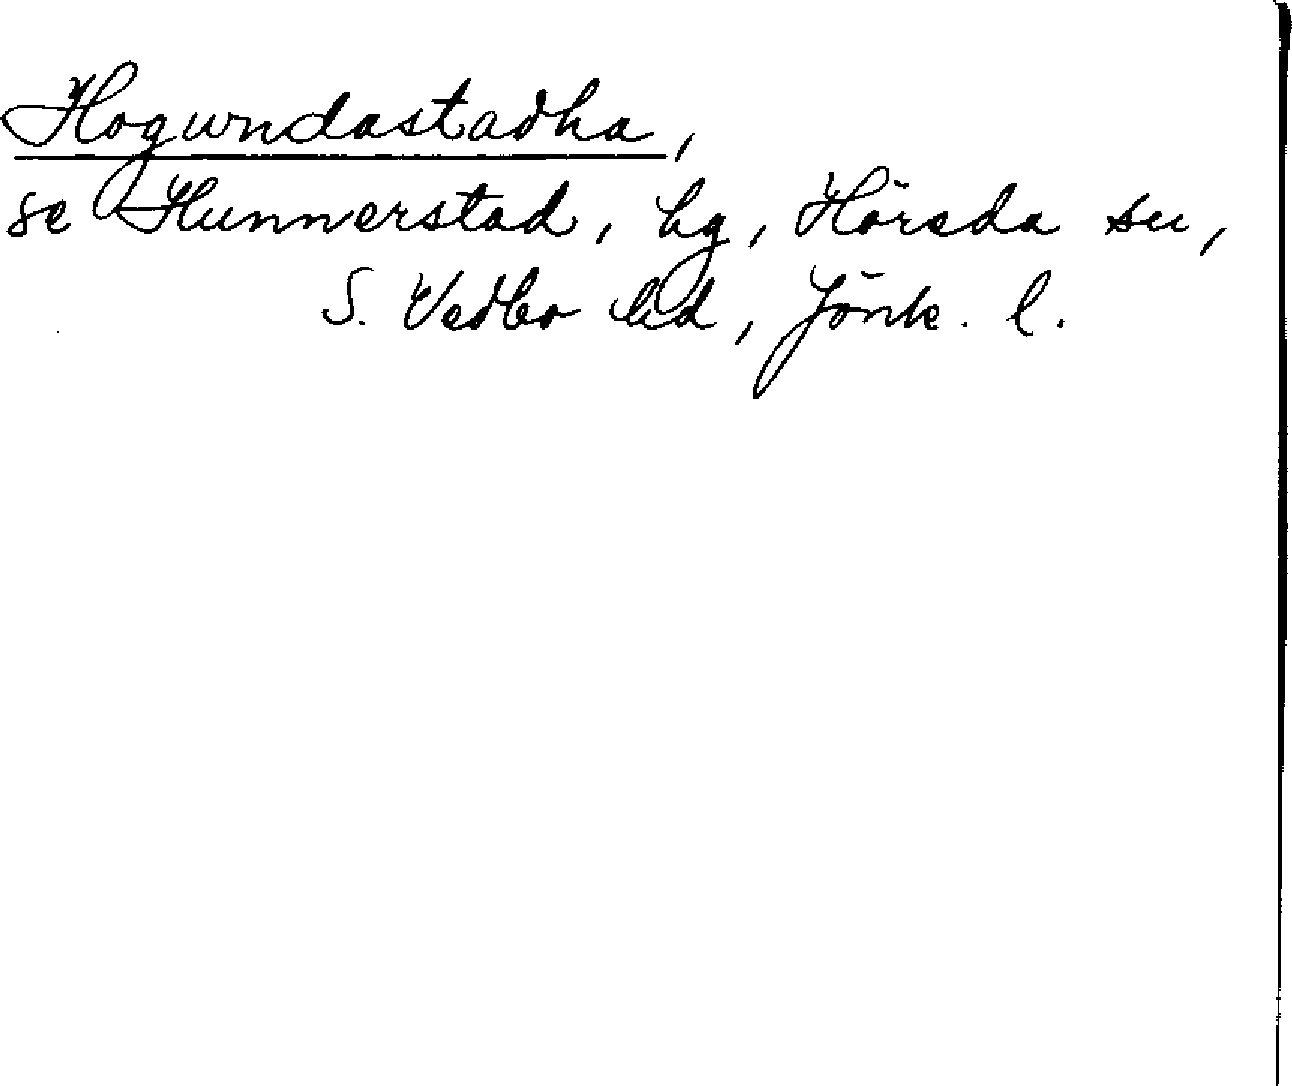 Hogwndastadha,
se Hunnerstad, hg, Höreda sn,
S. Vedbo hd, Jönk. l.